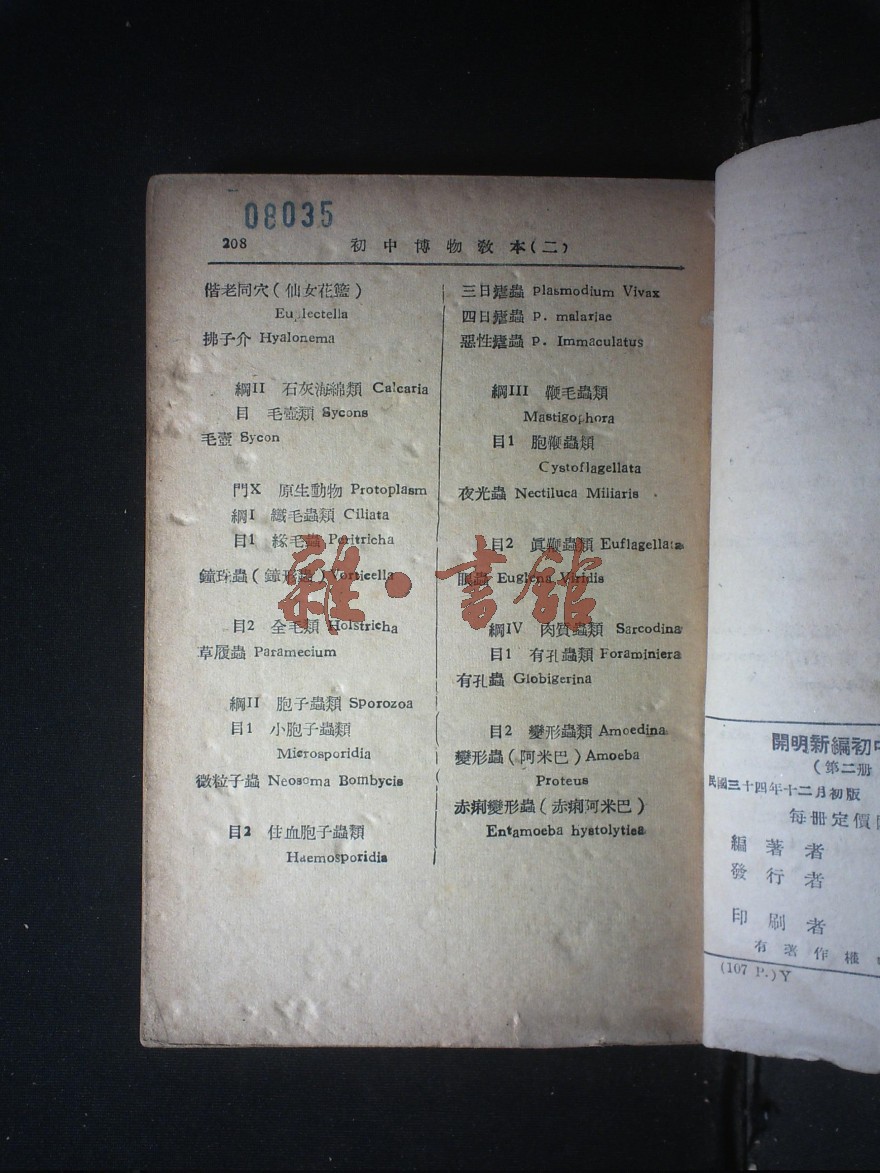 08035
208 初中博物敎本(二)
偕老同穴(仙女花籃)
Euplectella
拂子介 Hyalonema
綱II 石灰海綿類 Calcaria
目 毛壺類 Sycons
毛壺 Sycon
門X 原生動物 Protoplasm
綱I 纖毛蟲類 Ciliata
目1 緣毛蟲 Peritricha
鐘珠蟲(鐘形蟲) Vorticella
目2 全毛類 Holstricha
草履蟲 Paramecium
綱II 胞子蟲類 Sporozoa
目1 小胞子蟲類
Microsporidia
微粒子蟲 Neosoma Bombycis
目2 住血胞子蟲類
Haemosporidia
三日瘧蟲 plasmodium Vivax
四日瘧蟲 p. malariae
惡性瘧蟲 p. Immaculatus
綱III 鞭毛蟲類
Mastigophora
目1 胞鞭蟲類
Cystoflagellata
夜光蟲 Nectiluca Miliaris
目2 眞鞭蟲類 Euflagellata
眼蟲 Euglena Viridis
綱IV 肉質蟲類 Sarcodina
目1 有孔蟲類 Foraminiera
有孔蟲 Globigerina
目2 變形蟲類 Amoedina
變形蟲(阿米巴) Amoeba
Proteus
赤痢變形蟲(赤痢阿米巴)
Entamoeba hystolytica
雜·書館
開明新編初中
(第二册
民國三十四年十二月初版
每冊定價
編著者
發行者
印刷者
有著作權
(107 P.) Y